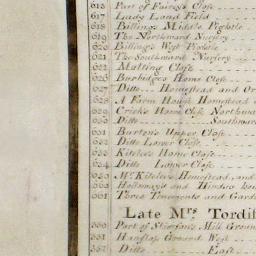 615 Part of Fairey's Close
617 Lady Land Field
618 Billing's Middle Pightle
619 The Northward Nursery
620 Billing's West Pightle
621 The Southward Nursery
622 Malting Close
626 Burbidge's Home Close
627 Ditto Homestead and Or
628 A Farm House Homestead
629 Crick's Home Close Northward
630 Ditto Southward
631 Burton's Upper Close
632 Ditto Lower Close
633 Kitelee's Home Close
634 Ditto Lower Close
650 Mr. Kitelee's Homestead, and
Homestead and
661 Three Tenements and Garden
Late Mrs. Tordif
Part of Ground
551 Ground West
Ditto East